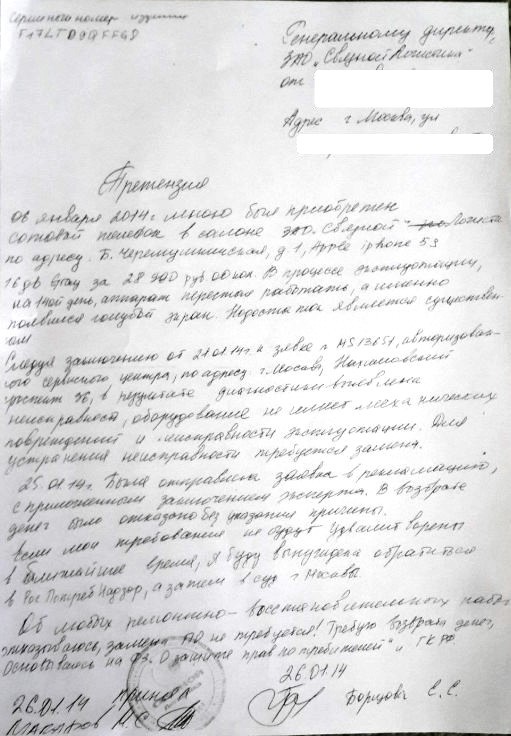 Серийного номер изделия
F17LTD9QFFG8
Генеральному директору,
ЗАО "Связной Логистика"
от
Адрес г Москва, ул
Претензия
06 января 2014г. мною был приобретен
сотовый телефон в салоне ЗАО. Связной" Логистика
по адресу. Б. Черемушкинская, д.1, Apple iphone 5s
16 gb Gray за 28 990 руб 00 коп. В процессе эксплуатации,
на 1ной день, аппарат перестал работать, а именно
появился голубой экран. Недостаток является существен-
ом
Следуя заключению от 21.01.14г. к заявке № MS13651, авторизован-
ного сервисного центра, по адресу г. Москва, Нахимовский
в результате диагностики выявлена
неисправность, оборудование не имеет механических
повреждений и неисправности эксплуатации. Для
устранения неисправности требуется замена.
25.01.14г. Была отправлена заявка в рекламацию,
с приложенным заключением эксперта. В возврате
денег было отказано без указания причины.
если мои требования не будут удовлетворены
в ближайшее время, я буду вынуждена обратиться
в Рос Потреб Надзор, а затем в суд г Москвы.
От любых ремонтно-восстановительных работ
отказываюсь, замена ПО не требуется! Требую возврата денег,
Основываясь на ФЗ. О защите прав потребителей" и ГК РФ
26.01.14
26.01.14 принял
Борцова Е. С.